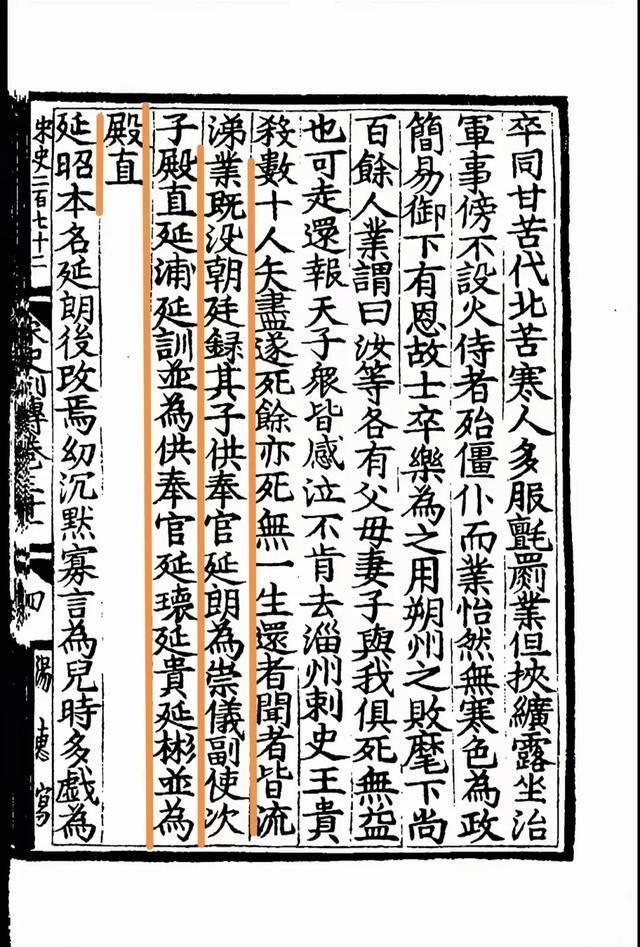 卒同甘苦代北苦寒人多服氈罽業但挾纊露坐治
軍事傍不設火侍者殆僵仆而業怡然無寒色為政
簡易御下有恩故士卒樂為之用朔州之敗麾下尚
百餘人業謂曰汝等各有父母妻子與我俱死無益
也可走還報天子衆皆感泣不肯去淄州刺史王貴
殺數十人矢盡遂死餘亦死無一生還者聞者皆流
涕業既没朝廷録其子供奉官延朗為崇儀副使次
子殿直延浦延訓並為供奉官延瓌延貴延彬並為
殿直
延昭本名延朗後改焉幼沉默寡言為兒時多戲為
宋史二百七十二
宋史列傳卷
四
惠寫